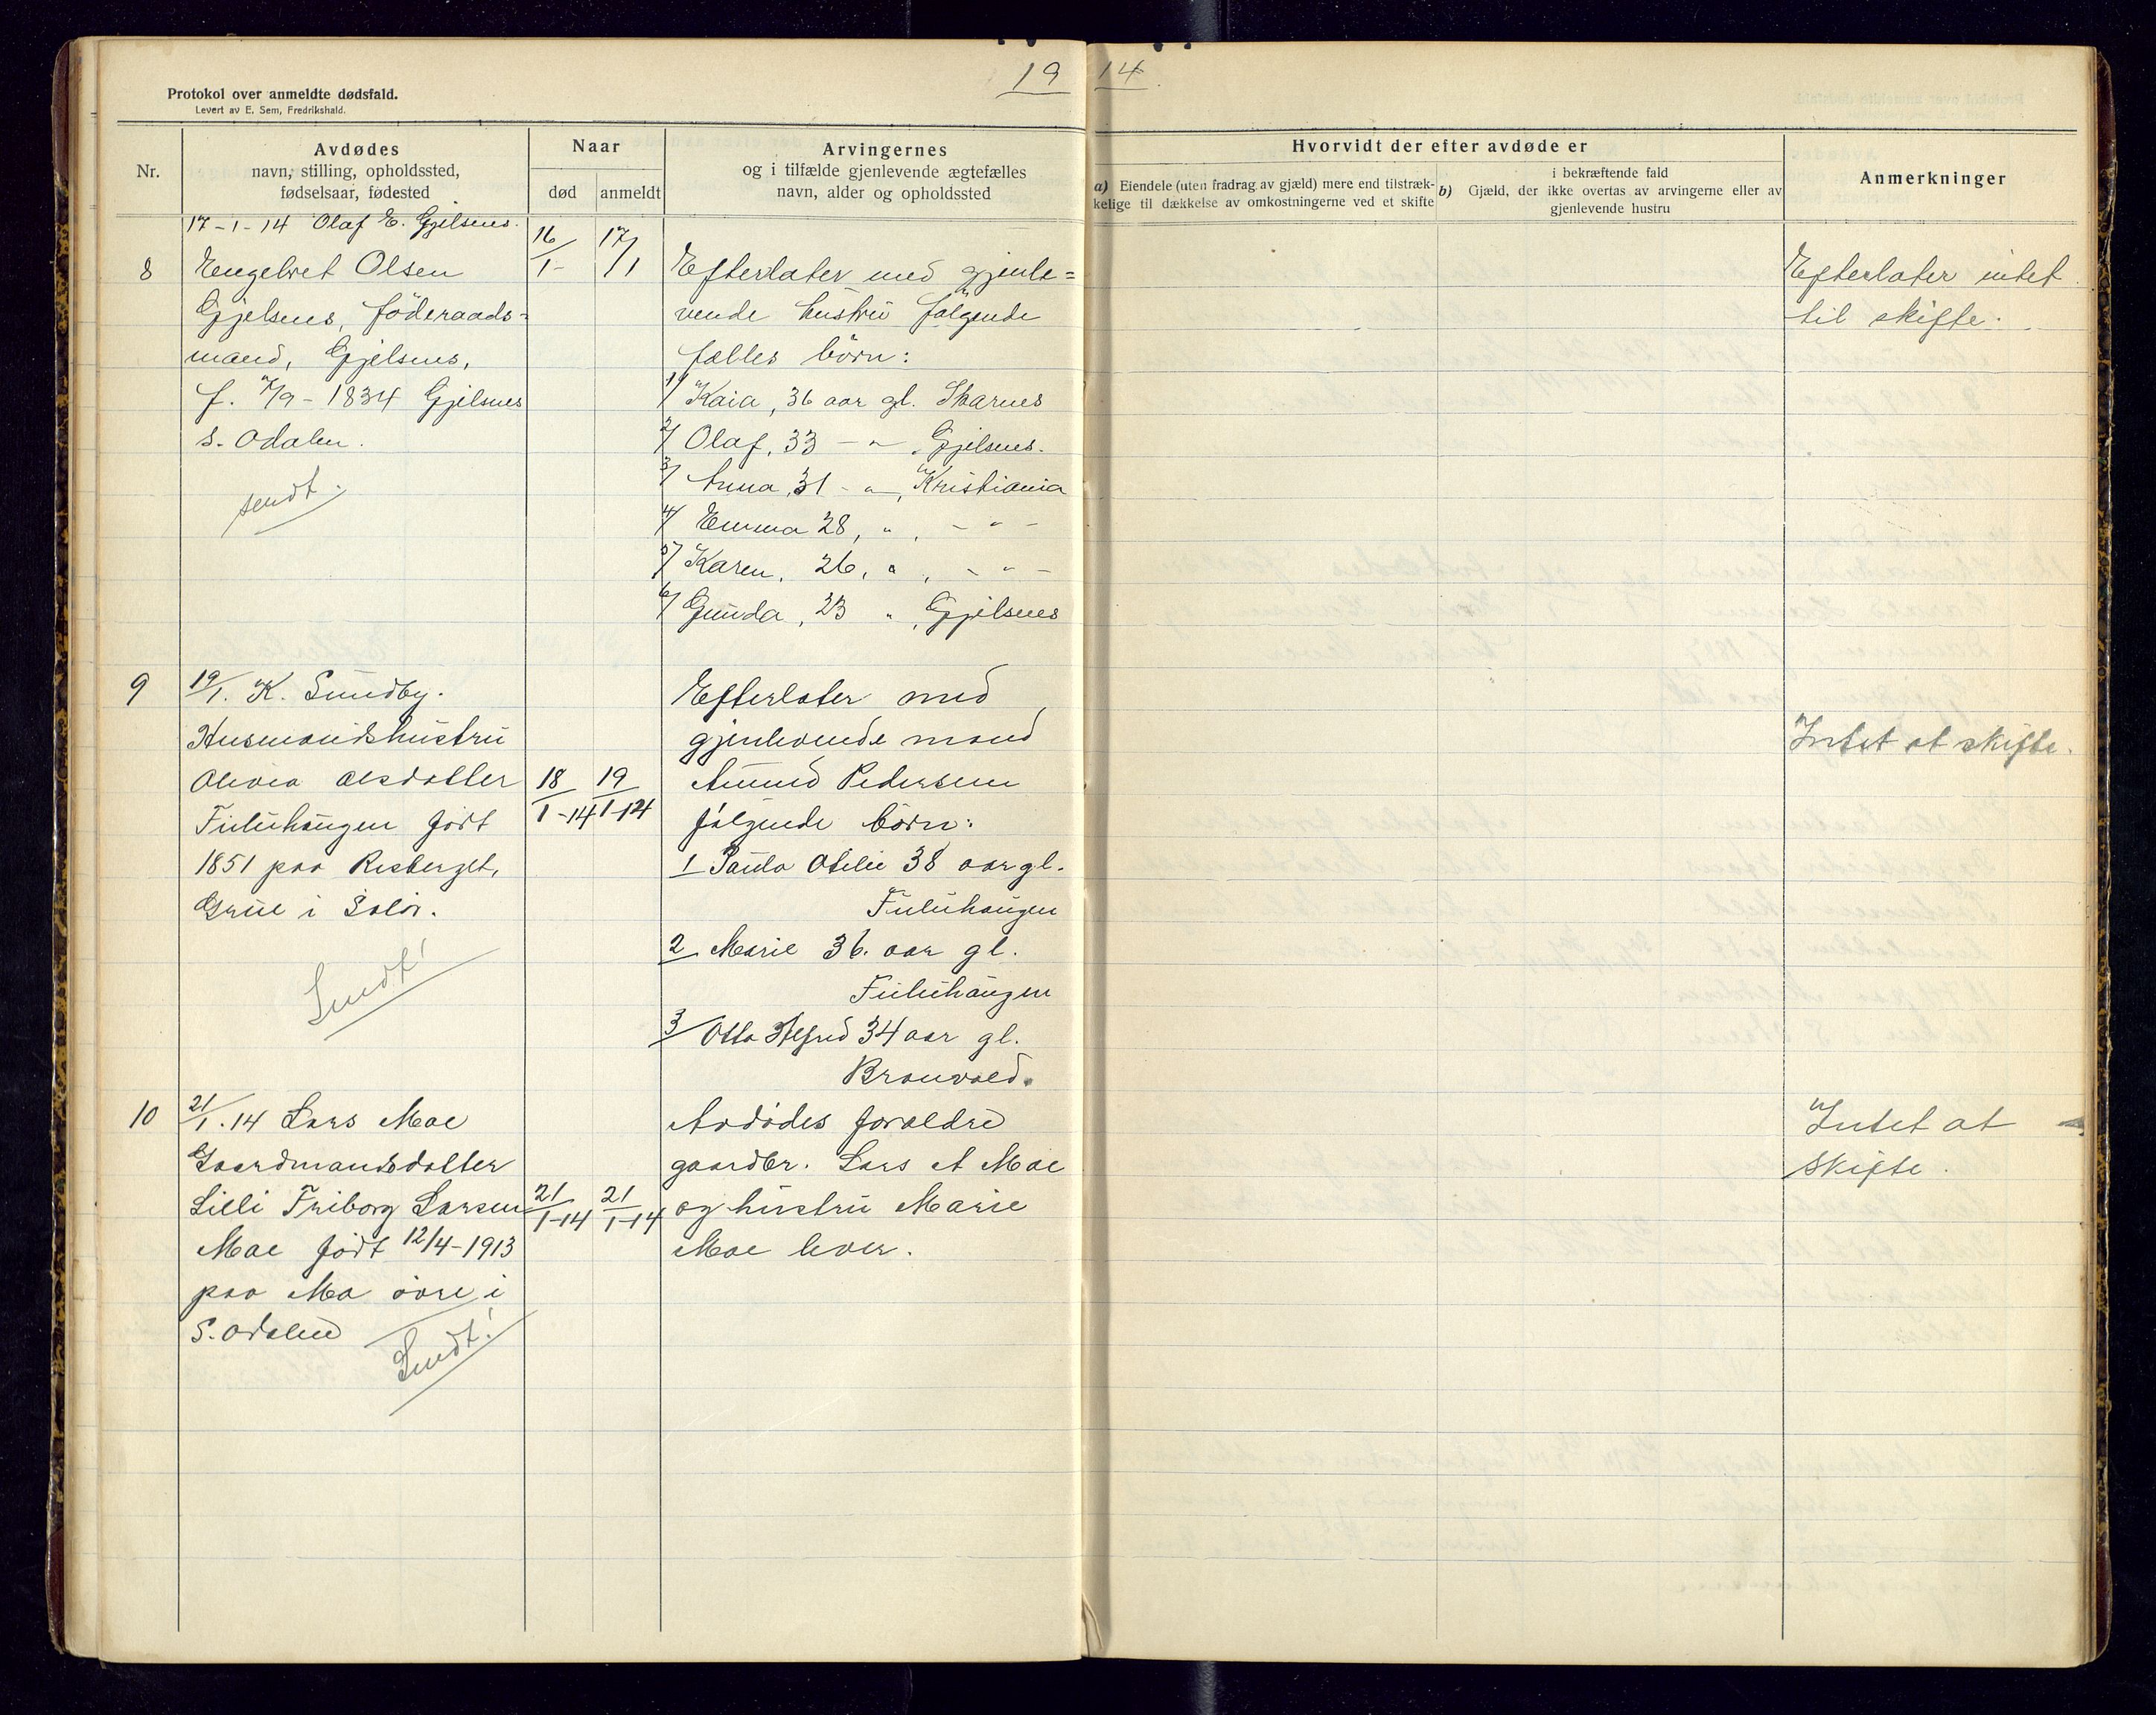 19 14.
Protokol over anmeldte dødsfald.
Levert av E. Sem, Fredrikshald.
Nr.
Avdødes
navn, stilling, opholdssted,
fødselsaar, fødested
Naar
død
anmeldt
Arvingernes
og i tilfælde gjenlevende ægtefælles
navn, alder og opholdssted
Hvorvidt der efter avdøde er
a) Eiendele (uten fradrag av gjæld) mere end tilstræk-
kelige til dækkelse av omkostningerne ved et skifte
i bekræftende fald
b) Gjæld, der ikke overtas av arvingerne eller av
gjenlevende hustru
Anmerkninger
17-1-14 Olaf E. Gjelsnes.
8
Engebret Olsen
Gjelsnes, föderaads-
mand, Gjelsnes,
f. 7/9-1834 Gjelsnes
S. Odalen.
sendt.
16/1-
17/1
Efterlater med gjenle=
vende hustru følgende
fælles börn:
1/ Kaia, 36 aar gl. Skarnes
2/ Olaf, 33 - " - Gjelsnes.
3/ Anna, 31 - " -, Kristiania
4/ Emma 28, " , - " -
5/ Karen, 26, " , - " -
6/ Gunda, 23 " , Gjelsnes
Efterlater intet
til skifte.
9
19/1. K. Sundby.
Husmandshustru
Olivia Olsdatter
Fuluhaugen født
1851 paa Risberget,
Grue i Solør.
Sendt!
18/1-14
19/1-14
Efterlater med
gjenlevende mand
Amund Pedersen
følgende børn:
1 Paula Otilie 38 aar gl.
Fuluhaugen
2 Marie 36. aar gl.
Fuluhaugen
3/ Otto Alfred 34 aar gl.
Brauvold.
Intet at skifte.
10
21/1.14 Lars Moe
Gaardmandsdatter
Lilli Friborg Larsen
Moe født 12/4-1913
paa Mo øvre i
S. Odalen
Sendt!
21/1-14
21/1-14
Avdødes foreldre
gaardbr. Lars A Moe
og hustru Marie
Moe lever.
Intet at
skifte.